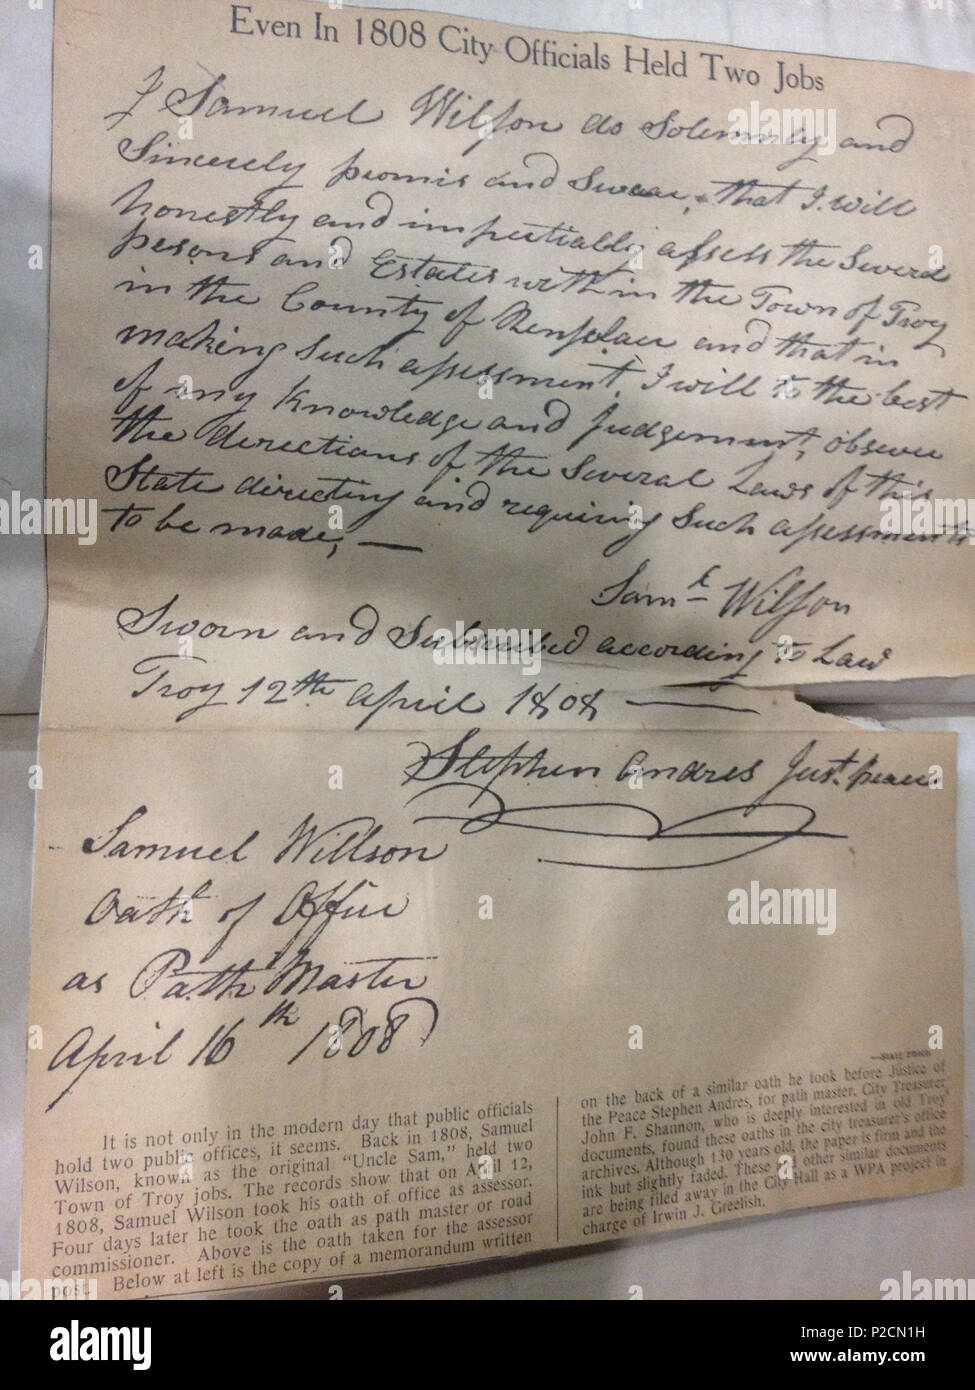 Even In 1808 City Officials Held Two Jobs
I Samuel Wilson do Solemnly and
Sincerely promis and Swear, that I will
honestly and impertially assess the Several
persons and Estates with in the Town of Troy
in the County of Rensselaer and that in
making Such assessment, I will to the best
of my Knowledge and Judgement, observe
the directions of the Several Laws of this
State directing and requiring Such assessments
to be made, —
Saml Wilson
Sworn and Subscribed according to Law
Troy 12th april 1808 —
Stephen Andres Just. peace
Samuel Willson
Oath of Office
as Path Master
April 16th 1808
It is not only in the modern day that public officials
hold two public offices, it seems. Back in 1808, Samuel
Wilson, known as the original "Uncle Sam," held two
Town of Troy jobs. The records show that on April 12,
1808, Samuel Wilson took his oath of office as assessor.
Four days later he took the oath as path master or road
commissioner. Above is the oath taken for the assessor
post. Below at left is the copy of a memorandum written
on the back of a similar oath he took before Justice of
the Peace Stephen Andres, for path master. City Treasurer
John F. Shannon, who is deeply interested in old Troy
documents, found these oaths in the city treasurer's office
archives. Although 130 years old, the paper is firm and the
ink but slightly faded. These and other similar documents
are being filed away in the City Hall as a WPA project in
charge of Irwin J. Greelish.
alamy
Image ID: P2CN1H
www.alamy.com